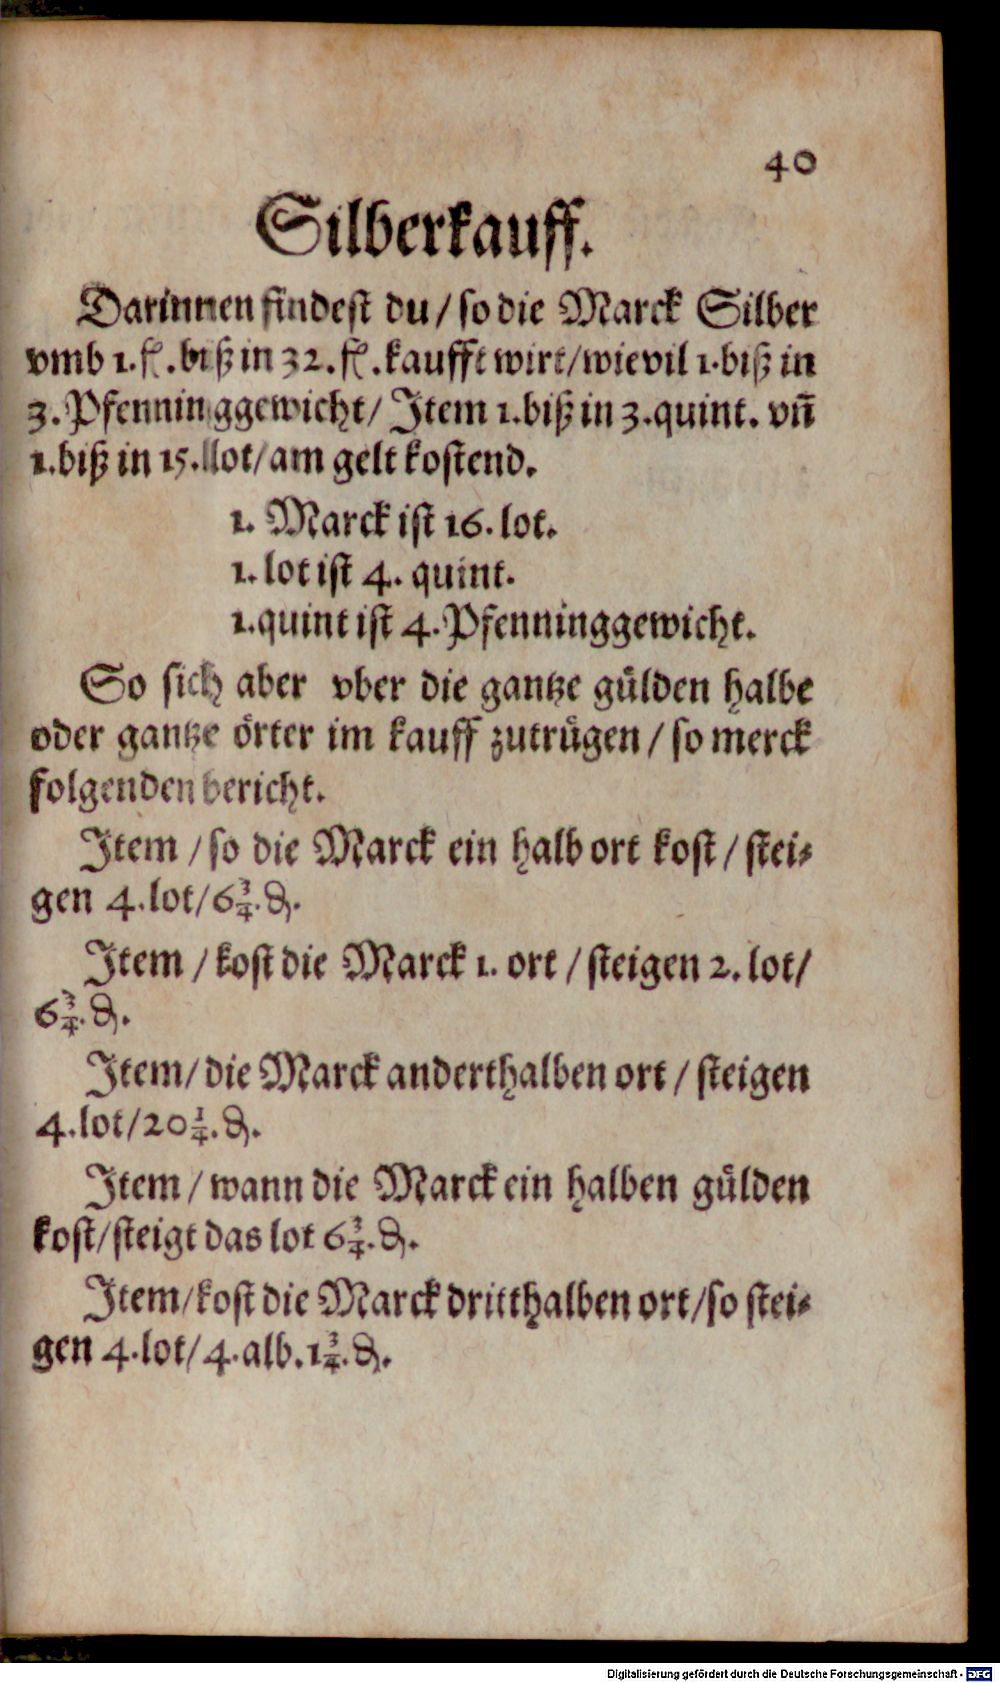 40
Silberkauff.
Darinnen findest du / so die Marck Silber
vmb 1. fl. biß in 32. fl. kaufft wirt / wie vil 1. biß in
3. Pfenninggewicht / Item 1. biß in 3. quint. vñ
1. biß in 15. lot / am gelt kostend.
1. Marck ist 16. lot.
1. lot ist 4. quint.
1. quint ist 4. Pfenninggewicht.
So sich aber vber die gantze gülden halbe
oder gantze örter im kauff zutrügen / so merck
folgenden bericht.
Item / so die Marck ein halb ort kost / stei-
gen 4. lot / 6 3/4. ₰.
Item / kost die Marck 1. ort / steigen 2. lot /
6 3/4. ₰.
Item / die Marck anderthalben ort / steigen
4. lot / 20 1/4. ₰.
Item / wann die Marck ein halben gülden
kost / steigt das lot 6 3/4. ₰.
Item / kost die Marck dritthalben ort / so stei-
gen 4. lot / 4. alb. 1 3/4. ₰.
Digitalisierung gefördert durch die Deutsche Forschungsgemeinschaft - DFG